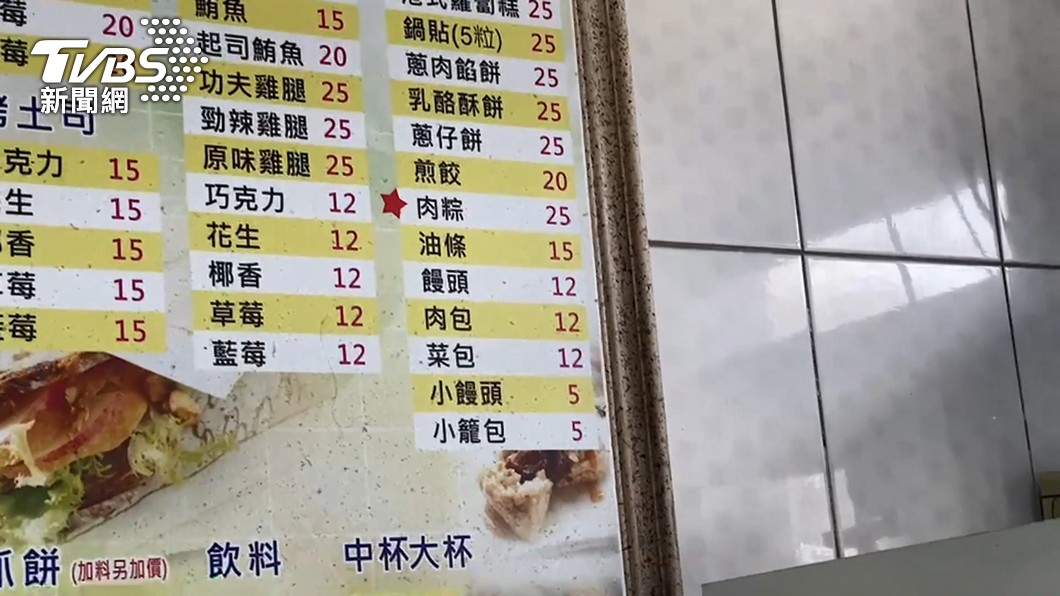 TVBS
新聞網
莓 20
莓
烤土司
克力 15
生 15
椰香 15
莓 15
莓 15
鮪魚 15
起司鮪魚 20
功夫雞腿 25
勁辣雞腿 25
原味雞腿 25
巧克力 12
花生 12
椰香 12
草莓 12
藍莓 12
港式蘿蔔糕 25
鍋貼(5粒) 25
蔥肉餡餅 25
乳酪酥餅 25
蔥仔餅 25
煎餃 20
肉粽 25
油條 15
饅頭 12
肉包 12
菜包 12
小饅頭 5
小籠包 5
抓餅 (加料另加價)
飲料
中杯大杯